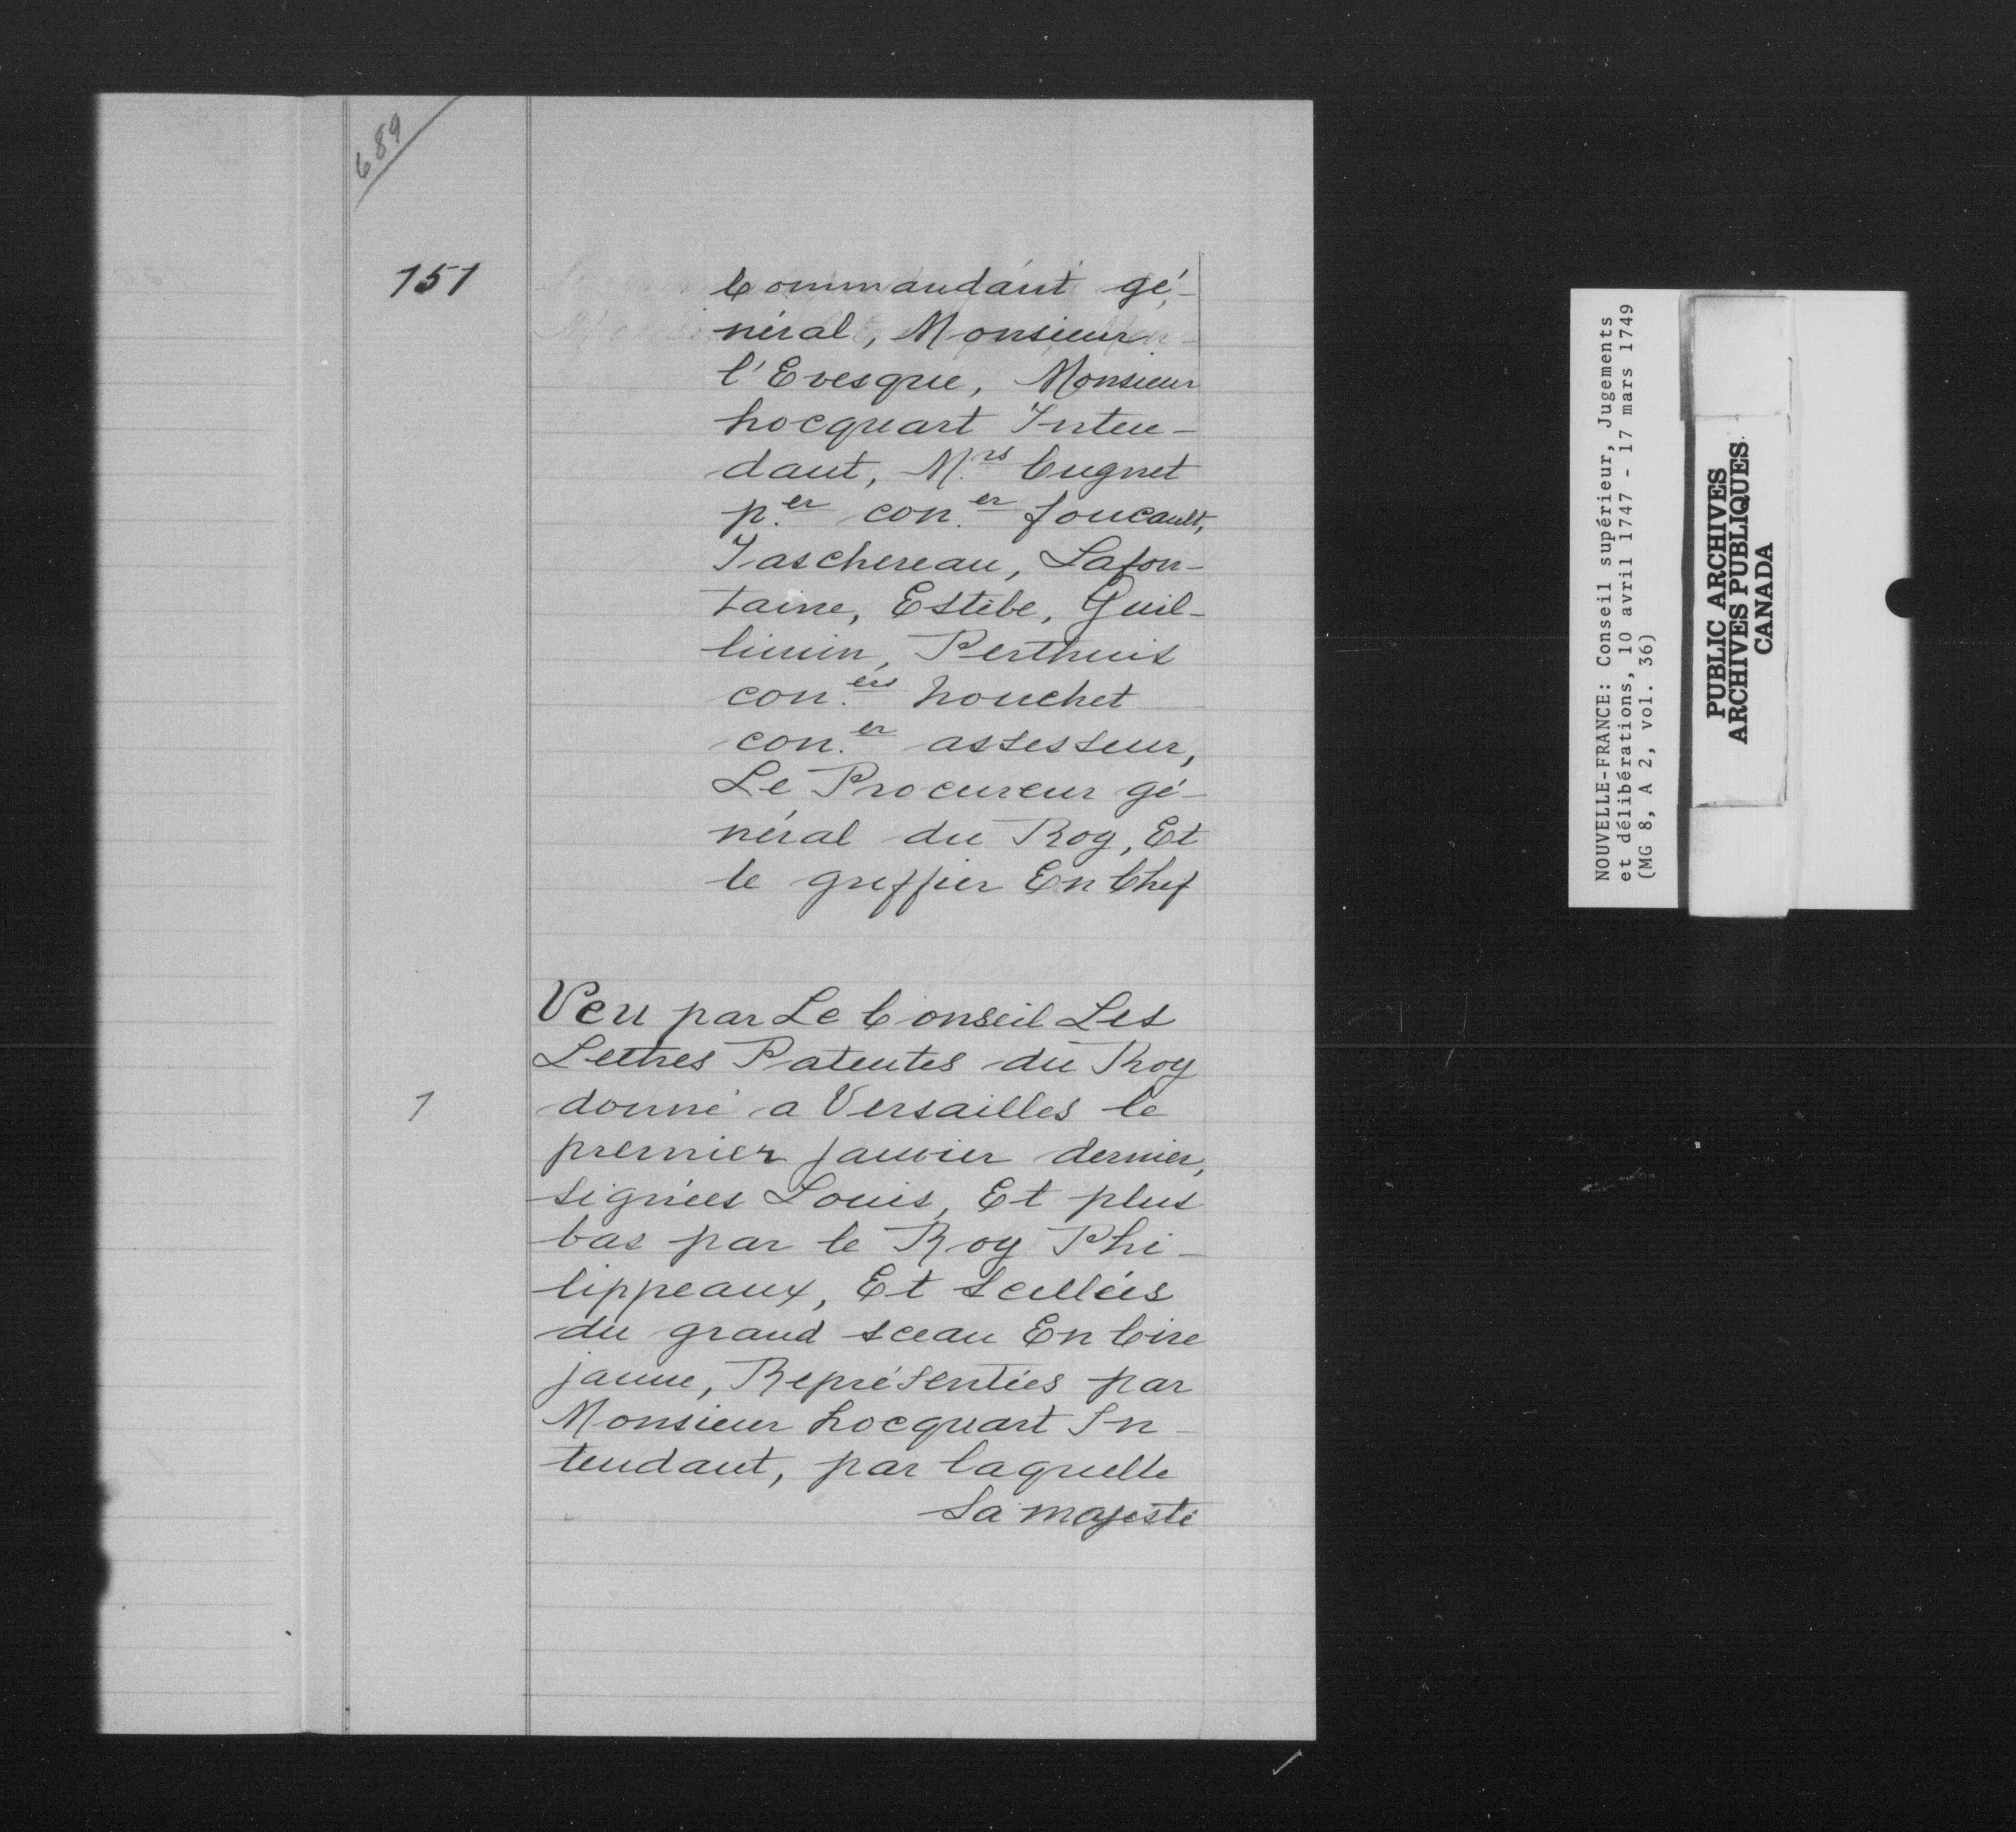 689
151
Commandant gé-
néral, Monsieur
l'Evesque, Monsieur
hocquart Inten-
dant, M.rs Cugnet
p.er con.er foucault,
Taschereau, Lafon-
taine, Estèbe, Guil-
limin, Perthuis
con.ers houchet
con.er assesseur,
Le Procureur gé-
néral du Roy, Et
le greffier En Chef
Veu par Le Conseil Les
Lettres Patentes du Roy
1
donné a Versailles le
premier janvier dernier,
signées Louis, Et plus
bas par le Roy Phi-
lippeaux, Et scellées
du grand sceau En Cire
jaune, Représentées par
Monsieur hocquart In-
tendant, par laquelle
Sa majesté
NOUVELLE-FRANCE: Conseil supérieur, Jugements
et délibérations, 10 avril 1747 - 17 mars 1749
(MG 8, A 2, vol. 36)
PUBLIC ARCHIVES
ARCHIVES PUBLIQUES
CANADA